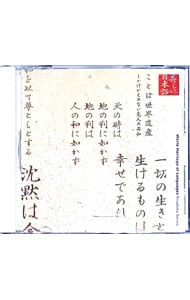 美しい
日本語
World Heritage of Languages
一切の生きと
生けるものは
幸せであれ
ことば世界遺産
天の時は
地の利に如かず
地の利は
人の和に如かず
を以て尊としとする
沈黙は金